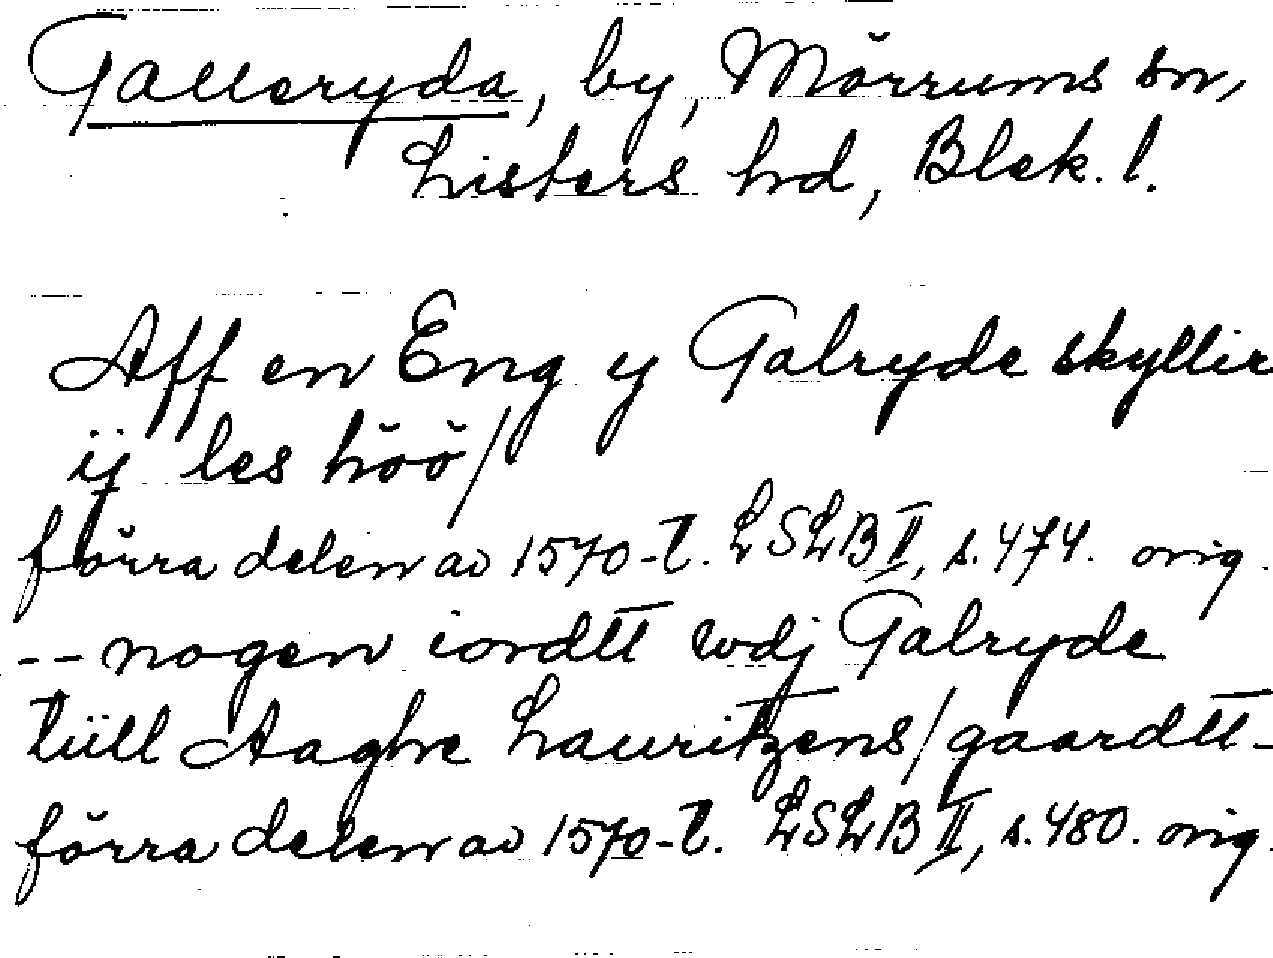 Galleryda, by, Mörrums sn,
Listers hd, Blek. l.
Aff en Eng y Galryde skyllir
ij les höö/
förra delen av 1570-t. LSLB II, s. 474. orig.
-- nogen iordtt wdj Galryde
tüll Aaghe Lauritzens/gaardtt-
förra delen av 1570-t. LSLB II, s. 480. orig.